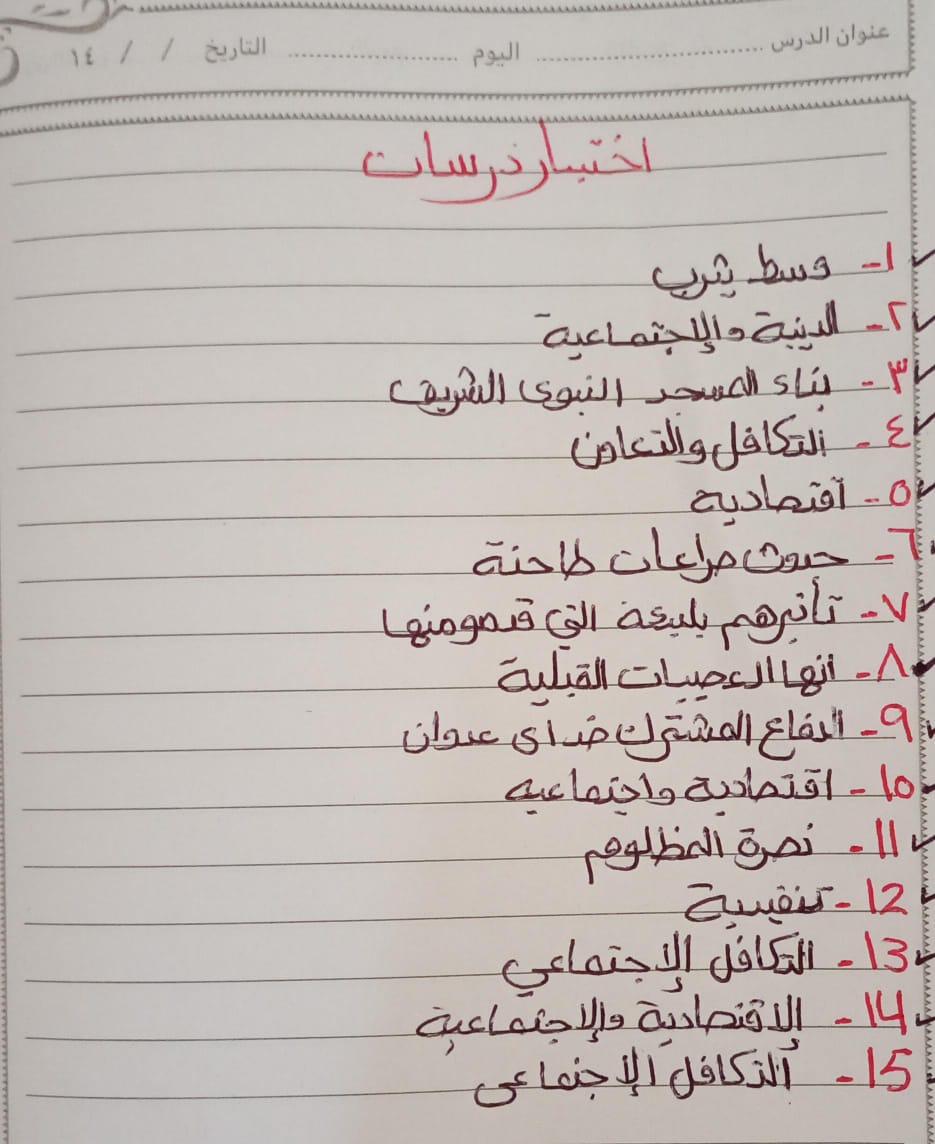 عنوان الدرس ........................ اليوم ........................ التاريخ / / ١٤
اختبار درسات
١- وسط يثرب
٢- الدينية والإجتماعية
٣- بناء المسجد النبوى الشريف
٤- التكافل والتعاون
٥- آقتصادية
٦- حدوث صراعات طاحنة
٧- تأثيرهم بلبيئة التي قدمومنها
٨- أنها العصبيات القبلية
9- الدفاع المشترك ضد اى عدوان
١٥- اقتصادية واجتماعيه
١١- نصرة المظلوم
12- تنفيسية
13- التكافل الإجتماعي
14- الإقتصادية والإجتماعية
15- ألتكافل الإجتماعى